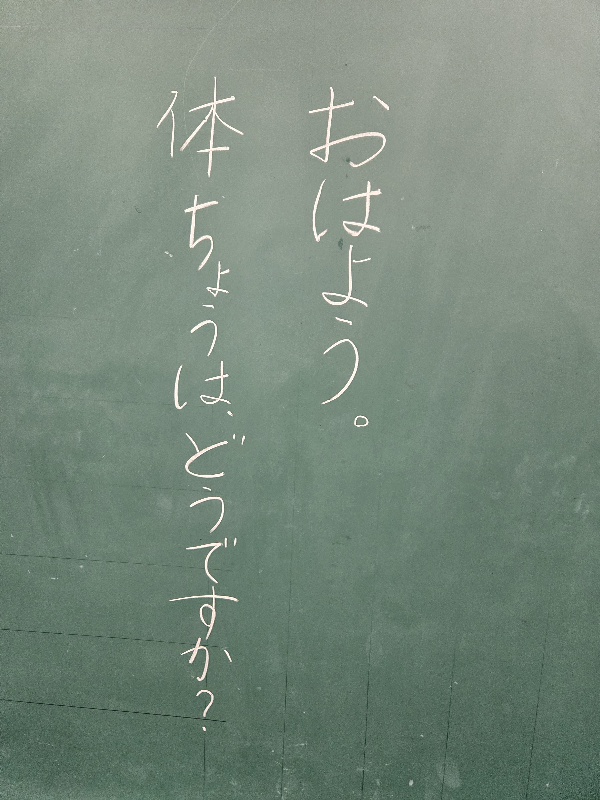 おはよう。
体ちょうは、どうですか?